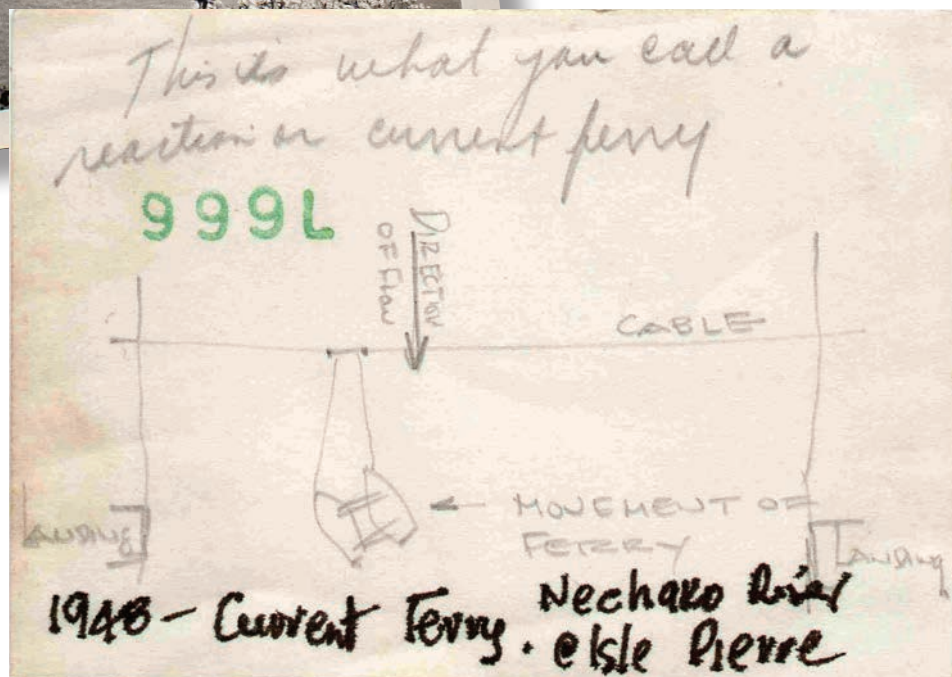 This is what you call a
reaction or current ferry
999L
DIRECTION
OF FLOW
CABLE
MOVEMENT OF
FERRY
LANDING
LANDING
1948 - Current Ferry. Nechako River
@ Isle Pierre